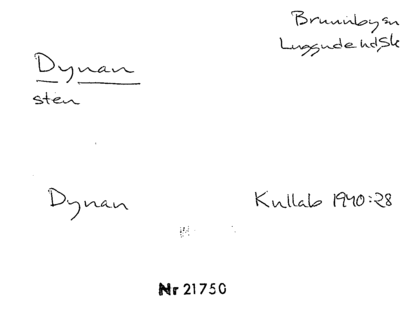 Brunnbysn
Luggude hd Sk
Dynan
sten
Dynan
Kullab 1940:28
Nr 21750